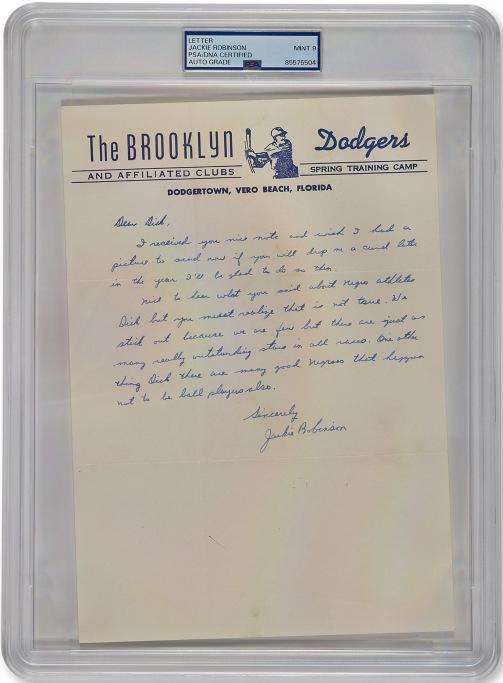 LETTER
JACKIE ROBINSON MINT 9
PSA/DNA CERTIFIED
AUTO GRADE PSA 85575504
The BROOKLYN Dodgers
AND AFFILIATED CLUBS SPRING TRAINING CAMP
DODGERTOWN, VERO BEACH, FLORIDA
Dear Dick,
I received you nice note and wish I had a
picture to send now if you will drop me a card late
in the year I'll be glad to do so then.
Nice to hear what you said about Negro athletes
Dick but you must realize that is not true. We
stick out because we are few but there are just as
many really outstanding stars in all races. One other
thing Dick there are many good Negroes that happen
not to be ball players also.
Sincerely
Jackie Robinson